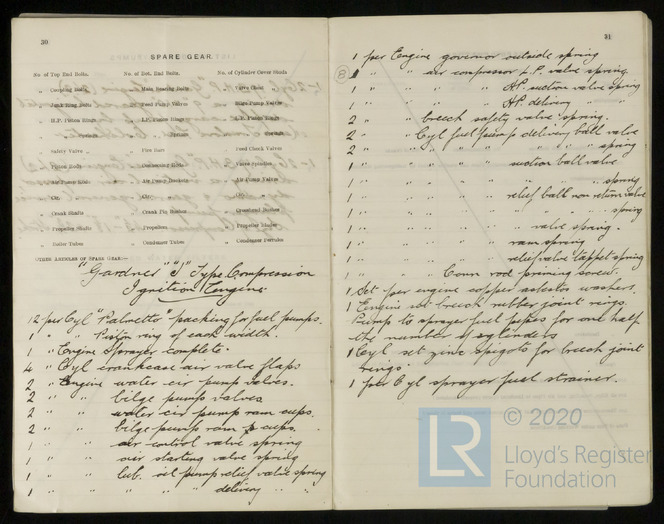 30
SPARE GEAR.
No. of Top End Bolts.
No. of Bot. End Bolts.
No. of Cylinder Cover Studs
Coupling Bolts
Main Bearing Bolts
Valve Chest
Junk Ring Bolts
Feed Pump Valves
Bilge Pump Valves
H.P. Piston Rings
I.P. Piston Rings
L.P. Piston Rings
Springs
Springs
Safety Valve
Fire Bars
Feed Check Valves
Piston Rods
Connecting Rods
Valve Spindles
Air Pump Rods
Air Pump Buckets
Air Pump Valves
Cir.
Cir.
Cir.
Crank Shafts
Crank Pin Bushes
Crosshead Bushes
Propeller Shafts
Propellers
Propeller Blades
Boiler Tubes
Condenser Tubes
Condenser Ferrules
OTHER ARTICLES OF SPARE GEAR:—
"Gardner "S" Type Compression
Ignition Engine
12 per Cyl "Palmetto" packing for fuel pumps.
1 " " Piston ring of each width.
1 " Engine Sprayer complete
4 " Cyl crankcase air valve flaps
2 " Engine water cir pump valves.
2 " " bilge pump valves
2 " " water cir pump ram cups.
2 " " bilge pump ram cups.
1 " " air control valve spring
1 " " air starting valve spring
1 " " lub. oil pump relief valve spring
1 " " " " delivery " "
31
1 per Engine governor outside spring
8
1 " " air compressor L.P. valve spring.
1 " " " " H.P. suction valve spring
1 " " " " H.P. delivery " "
2 " " breech safety valve spring.
2 " " Cyl fuel pump delivery ball valve
2 " " " " " " " spring
1 " " " " suction ball valve
1 " " " " " " spring
1 " " " " relief ball non return valve
1 " " " " " " " spring
1 " " " " valve spring.
1 " " " " ram spring
1 " " " " relief valve tappet spring
1 " " Conn rod priming screw.
1 Set per engine copper asbestos washers.
1 Engine set breech rubber joint rings.
Pump to sprayer fuel pipes for one half
the number of cylinders
1 Cyl set zinc spigots for breech joint
rings
1 per Cyl sprayer fuel strainer.
LR
© 2020
Lloyd's Register
Foundation